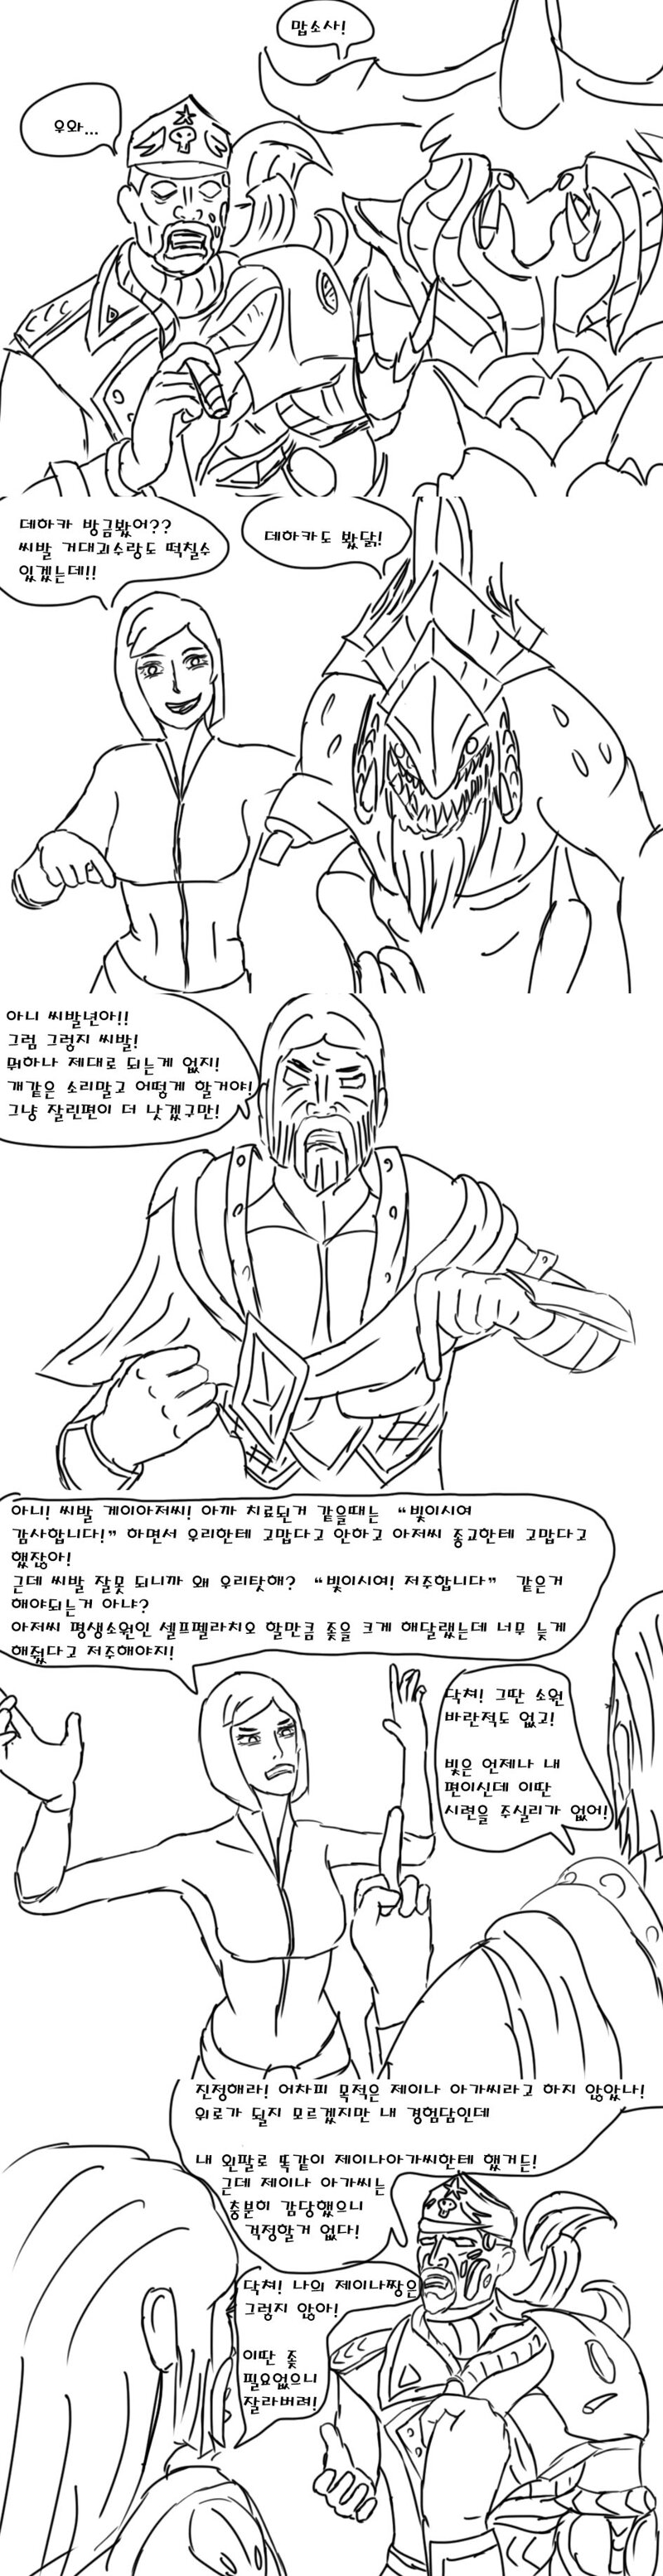 맙소사!
우와...
데하카 방금봤어??
씨발 거대괴수랑도 떡칠수
있겠는데!!
데하카도 봤닭!
아니 씨발년아!!
그럼 그렇지 씨발!
뭐하나 제대로 되는게 없지!
개같은 소리말고 어떻게 할거야!
그냥 잘린편이 더 낫겠구만!
아니! 씨발 게이아저씨! 아까 치료된거 같을때는 “빛이시여
감사합니다!” 하면서 우리한테 고맙다고 안하고 아저씨 종교한테 고맙다고
했잖아!
근데 씨발 잘못 되니까 왜 우리탓해? “빛이시여! 저주합니다” 같은거
해야되는거 아냐?
아저씨 평생소원인 셀프펠라치오 할만큼 좆을 크게 해달랬는데 너무 늦게
해줬다고 저주해야지!
닥쳐! 그딴 소원
바란적도 없고!
빛은 언제나 내
편이신데 이딴
시련을 주실리가 없어!
진정해라! 어차피 목적은 제이나 아가씨라고 하지 않았나!
위로가 될지 모르겠지만 내 경험담인데
내 왼팔로 똑같이 제이나아가씨한테 했거든!
근데 제이나 아가씨는
충분히 감당했으니
걱정할거 없다!
닥쳐! 나의 제이나짱은
그렇지 않아!
이딴 좆
필요없으니
잘라버려!